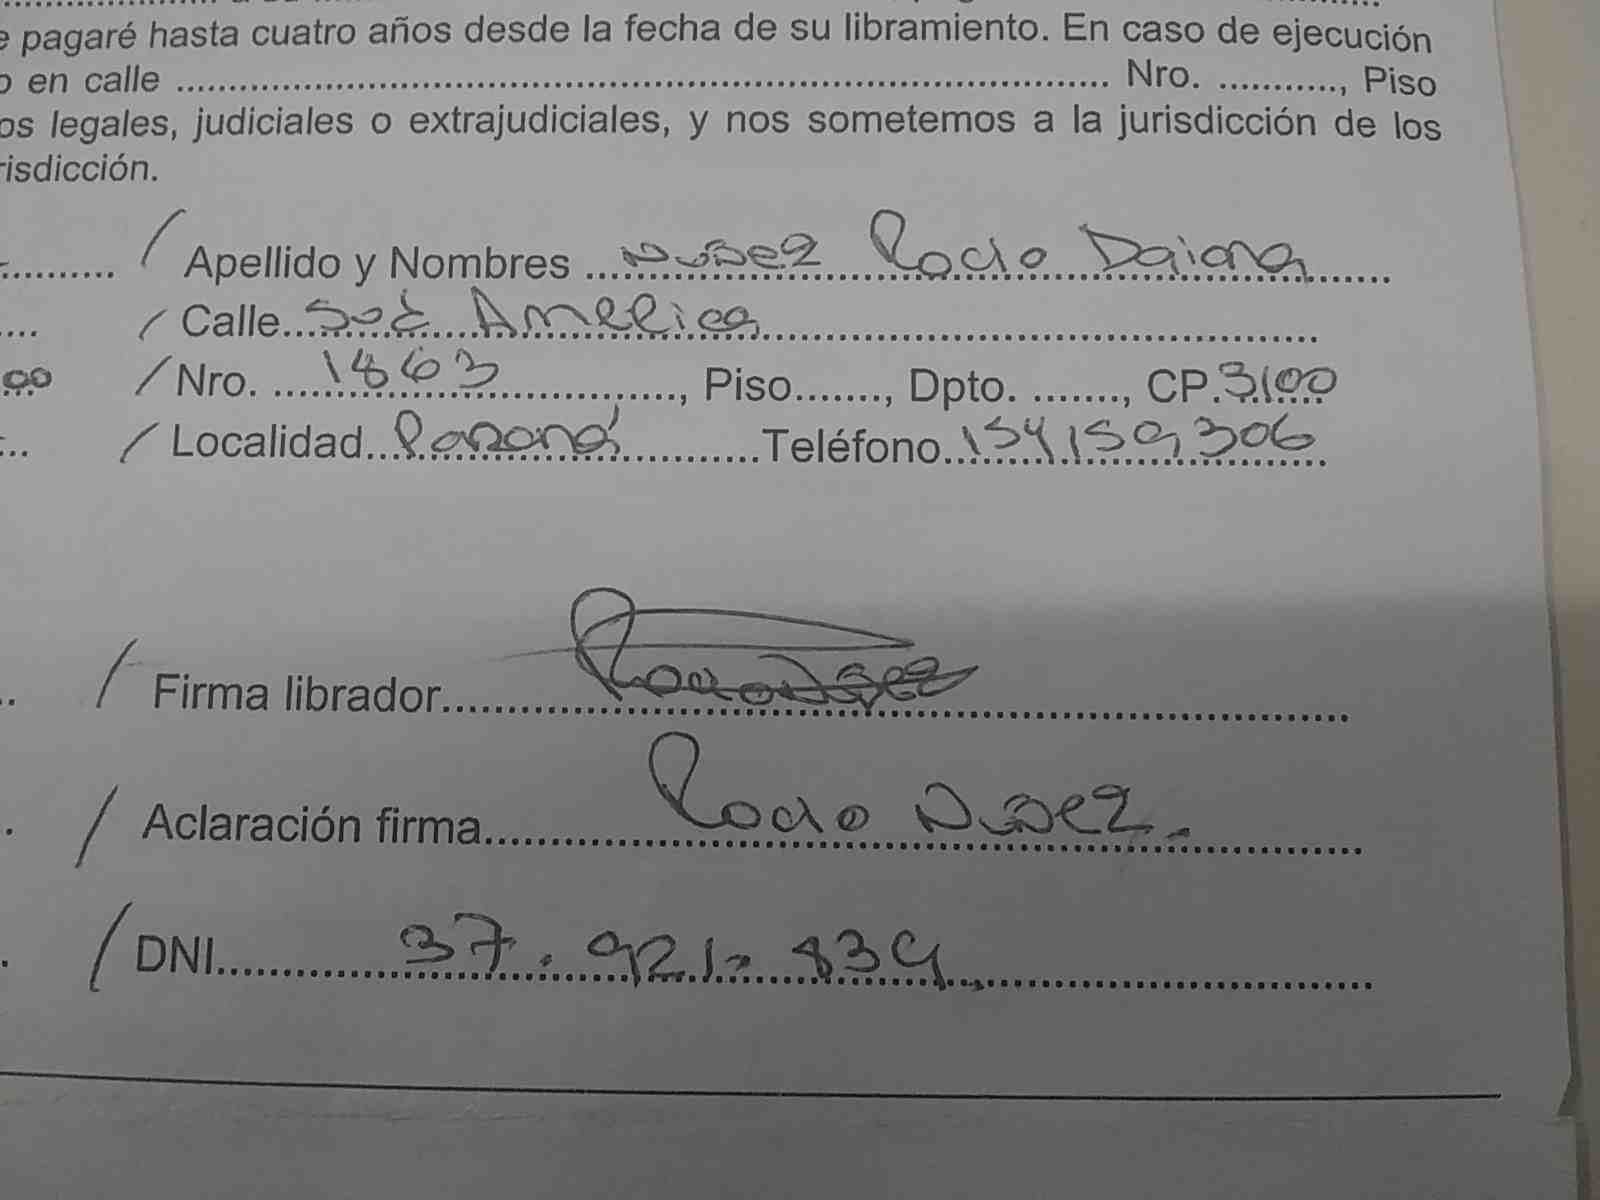 e pagaré hasta cuatro años desde la fecha de su libramiento. En caso de ejecución
o en calle .......... Nro. .........., Piso
os legales, judiciales o extrajudiciales, y nos sometemos a la jurisdicción de los
risdicción.
/ Apellido y Nombres Nuñez Rocio Daiana
/ Calle Sud America
00 / Nro. 1863, Piso......., Dpto. ......., CP. 3100
/ Localidad Paraná Teléfono 154159306
/ Firma librador Rocio Nuñez
/ Aclaración firma Rocio Nuñez.
/ DNI 37.921.839